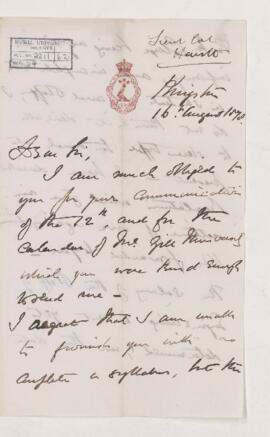 Lieut Col
Hewitt
Kingston
16th August 1878.
Dear Sir,
I am much obliged to
you for your communication
of the 12th, and for the
calendar of McGill University
which you were kind enough
to send me —
I regret that I am unable
to furnish you with so
complete a syllabus, but the